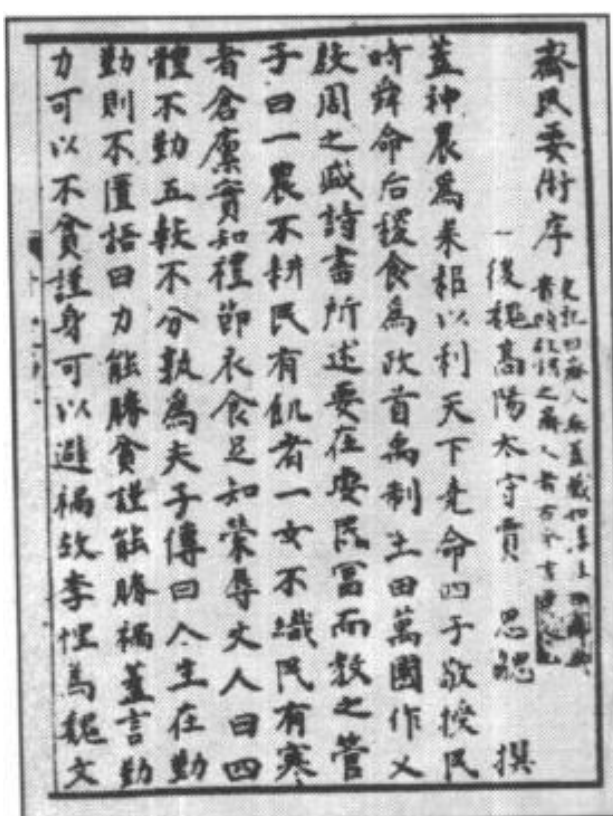 齊民要術序
史記曰齊人無盖藏如淳注曰齊
貴賤故謂之齊人者若今言平
後魏高陽太守賈 思勰 撰
蓋神農爲耒耜以利天下堯命四子敬授民
時舜命后稷食爲政首禹制土田萬國作乂
殷周之盛詩書所述要在安民富而教之管
子曰一農不耕民有飢者一女不織民有寒
者倉廩實知禮節衣食足知榮辱丈人曰四
體不勤五穀不分孰爲夫子傳曰人生在勤
勤則不匱語曰力能勝貧謹能勝禍蓋言勤
力可以不貧謹身可以避禍故李悝爲魏文